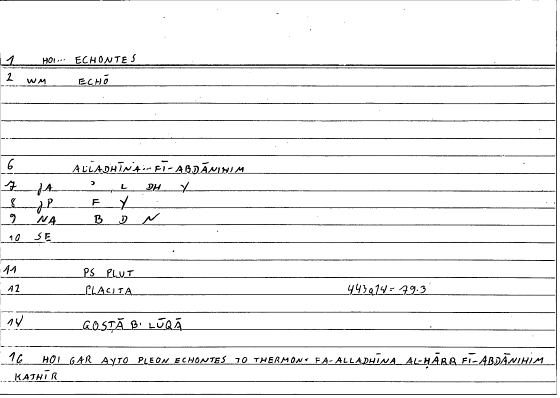 1 HOI... ECHONTES
2 WM ECHŌ
6 ALLADHĪNA...FĪ-ABDĀNIHIM
7 JA ' L DH Y
8 JP F Y
9 NA B D N
10 SE
11 PS PLUT
12 PLACITA 443a14 = 79.3
14 QOSṬĀ B. LŪQĀ
16 HOI GAR AYTO PLEON ECHONTES TO THERMON: FA-ALLADHĪNA AL-ḤĀRR FĪ-ABDĀNIHIM
KATHĪR